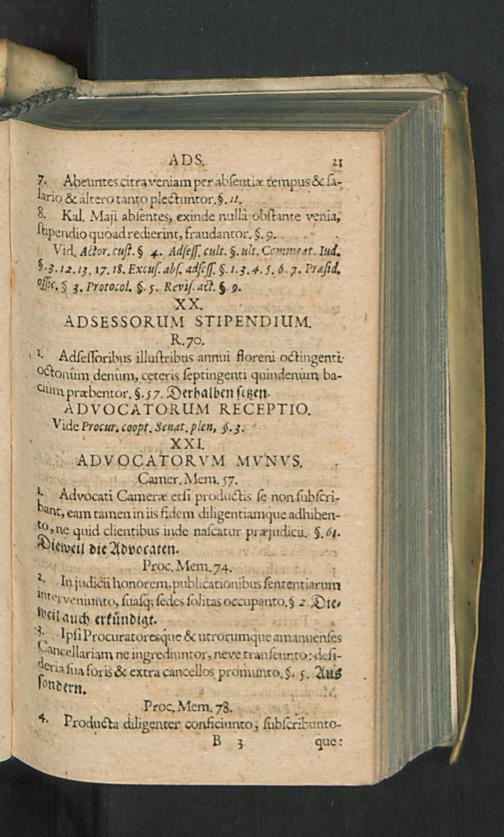 ADS. 21
7. Abeuntes citra veniam per absentiæ tempus & sa-
lario & altero tanto plectuntor. §. 11.
8. Kal. Maji absentes, exinde nullâ obstante venia,
stipendio quoad redierint, fraudantor. §. 9.
Vid. Actor. cust. § 4. Adsess. cult. §. ult. Commeat. Iud.
§. 3. 12. 13. 17. 18. Excus. abs. adsess. §. 1. 3. 4. 5. 6. 7. Præsid.
offic. § 3. Protocol. §. 5. Revis. act. § 9.
XX.
ADSESSORUM STIPENDIUM.
R. 70.
1. Adsessoribus illustribus annui floreni octingenti
octonûm denûm, ceteris septingenti quindenûm ba-
cium præbentor. §. 57. Derhalben setzen.
ADVOCATORUM RECEPTIO.
Vide Procur. coopt. Senat. plen, §. 3.
XXI.
ADVOCATORVM MVNVS.
Camer. Mem. 57.
1. Advocati Cameræ etsi productis se non subscri-
bant, eam tamen in iis fidem diligentiamque adhiben-
to, ne quid clientibus inde nascatur præjudicii. §. 61.
Dieweil die Advocaten.
Proc. Mem. 74.
2. In judicii honorem, publicationibus sententiarum
interveniunto, suasq; sedes solitas occupanto. § 2. Die-
weil auch erkündigt.
3. Ipsi Procuratoresque & utrorumque amanuenses
Cancellariam ne ingrediuntor, neve transeunto: desi-
deria sua foris & extra cancellos promunto. §. 5. Aus
sondern.
Proc. Mem. 78.
4. Producta diligenter conficiunto, subscribunto-
B 3 que: